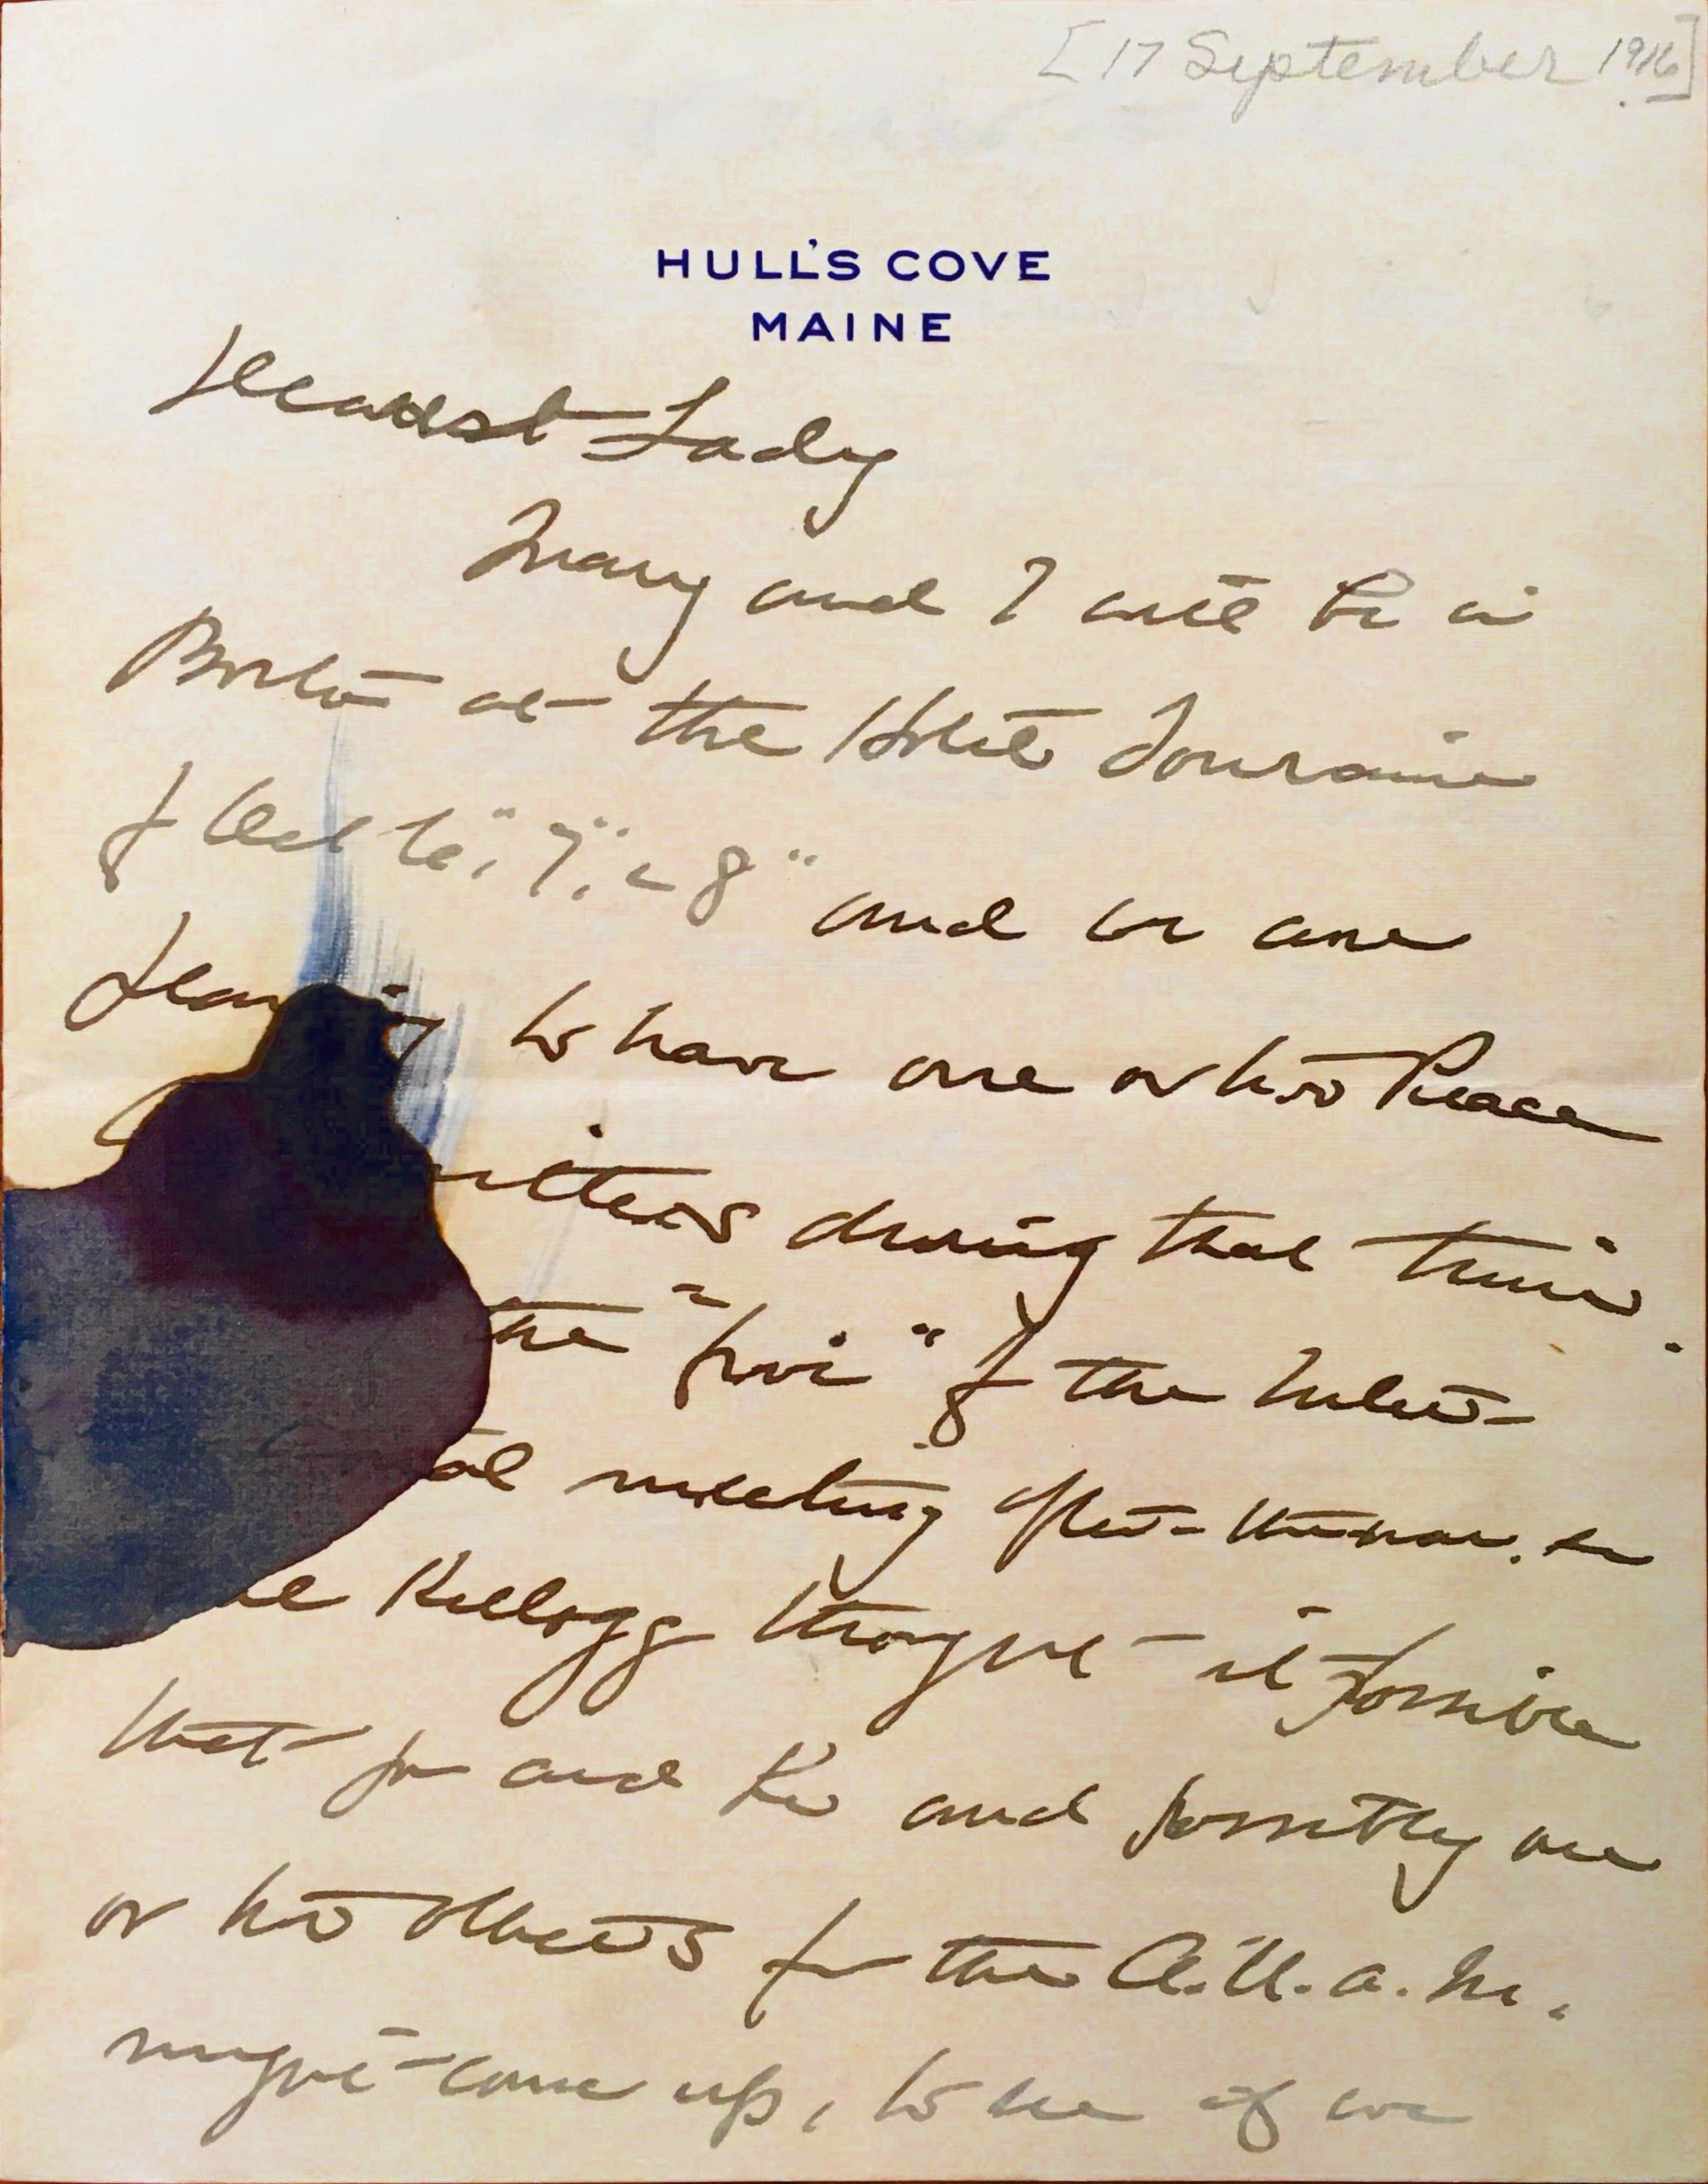 [17 September 1916]
HULL'S COVE
MAINE
Dearest Lady
Mary and I will be in
Boston at the Hotel Touraine
of Oct 6", 7", & 8" and we are
to have one or two Peace
during that time.
the "furi" of the Inter-
meeting
Kellogg thought it possible
that you and Ku and possibly one
or two others for the A.U.A.M.
might come up, to see if we